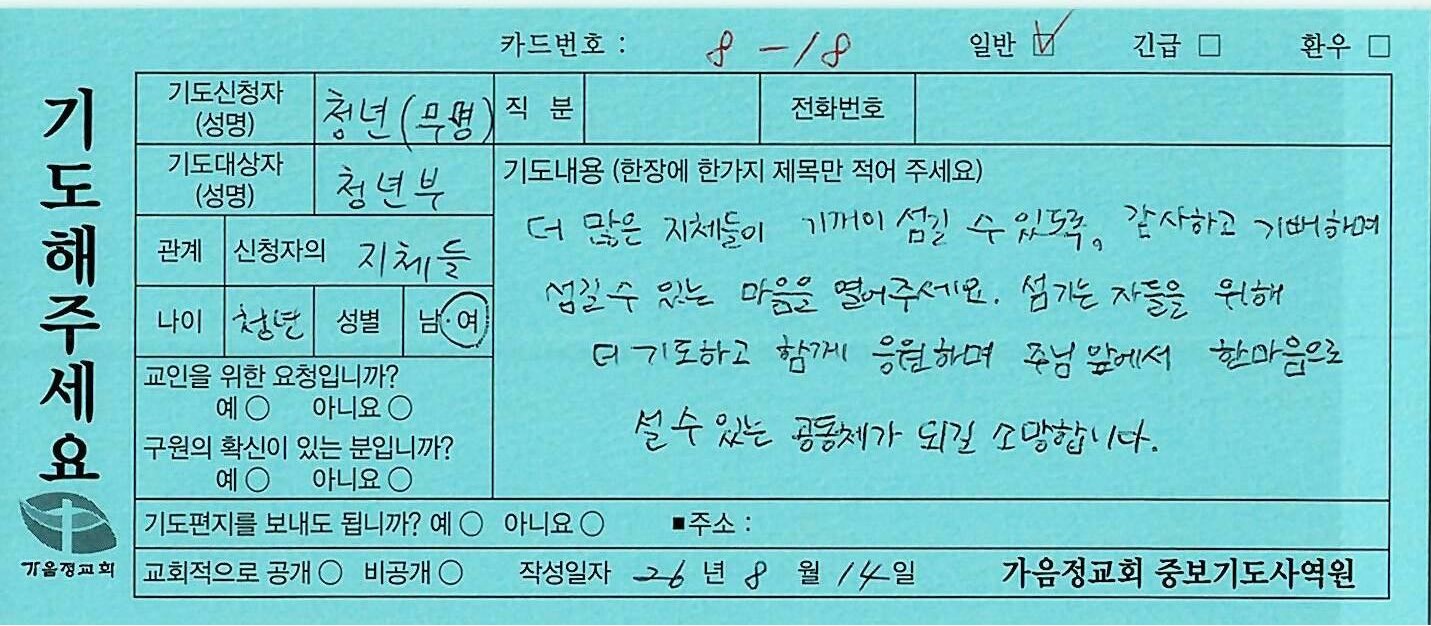 카드번호 : 8-18 일반 ☑ 긴급 □ 환우 □
기도해주세요
기도신청자 (성명) 청년(무명) 직 분 전화번호
기도대상자 (성명) 청년부
관계 신청자의 지체들
나이 청년 성별 남·여
교인을 위한 요청입니까?
예 ○ 아니요 ○
구원의 확신이 있는 분입니까?
예 ○ 아니요 ○
기도내용 (한장에 한가지 제목만 적어 주세요)
더 많은 지체들이 기꺼이 섬길 수 있도록, 감사하고 기뻐하며
섬길 수 있는 마음을 열어주세요. 섬기는 자들을 위해
더 기도하고 함께 응원하며 주님 앞에서 한마음으로
설 수 있는 공동체가 되길 소망합니다.
기도편지를 보내도 됩니까? 예 ○ 아니요 ○ ■주소 :
교회적으로 공개 ○ 비공개 ○ 작성일자 26 년 8 월 14 일 가음정교회 중보기도사역원
가음정교회